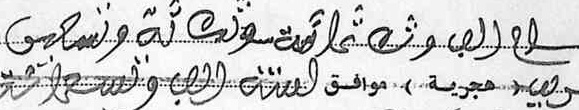 الف وثلاثمائة وثلاثة وتسعين
هجرية ، موافق لسنة الف وتسعمائة